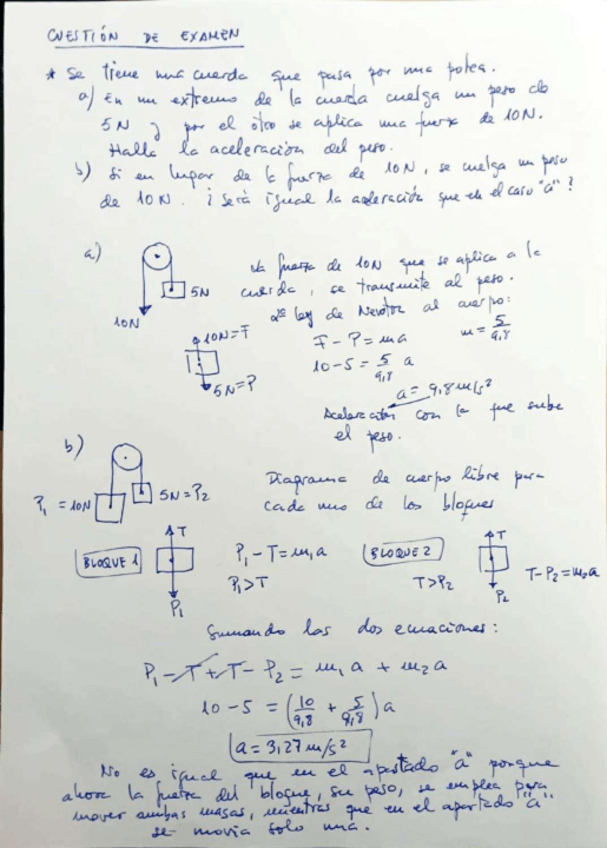 CUESTIÓN DE EXAMEN
* Se tiene una cuerda que pasa por una polea.
a) En un extremo de la cuerda cuelga un peso de
5N y por el otro se aplica una fuerza de 10N.
Halla la aceleración del peso.
b) Si en lugar de la fuerza de 10N, se cuelga un peso
de 10N. ¿Será igual la aceleración que en el caso "a"?
a)
5N
10N
La fuerza de 10N que se aplica a la
cuerda, se transmite al peso.
2ª ley de Newton al cuerpo:
10N=F
5N=P
F - P = ma
m = 5/9,8
10-5 = 5/9,8 a
a = 9,8 m/s²
Aceleración con la que sube
el peso.
b)
P₁ = 10N
5N=P₂
Diagrama de cuerpo libre para
cada uno de los bloques
BLOQUE 1
T
P₁
P₁-T=m₁a
P₁>T
BLOQUE 2
T
P₂
T>P₂
T-P₂=m₂a
Sumando las dos ecuaciones:
P₁-T+T-P₂ = m₁a + m₂a
10-5 = (10/9,8 + 5/9,8)a
a = 3,27 m/s²
No es igual que en el apartado "a" porque
ahora la fuerza del bloque, su peso, se emplea para
mover ambas masas, mientras que en el apartado "a"
se movia solo una.